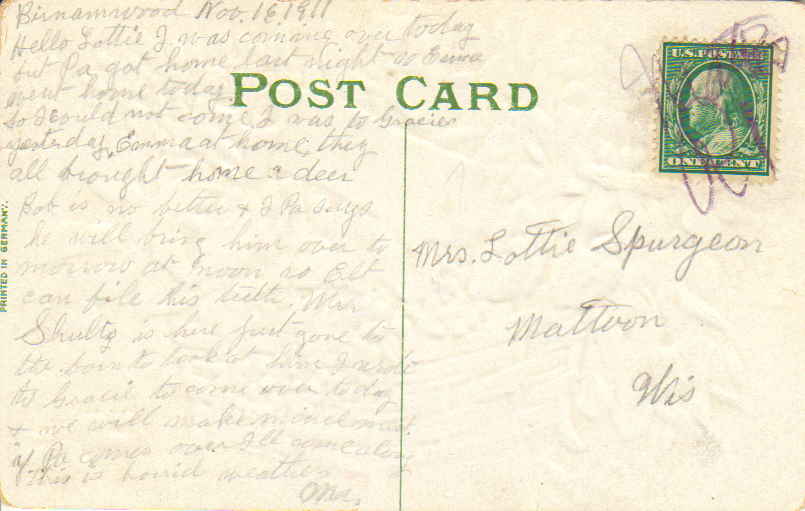 Birnamwood Nov. 16, 1911
Hello Lottie I was coming over today
but Pa got home last night so Emma
went home today
So I could not come I was to Gracies
yesterday, Emma at home, they
all brought home a deer
Bob is no better & Pa says
he will bring him over to
morrow at noon so Elt
can file his teeth. Mr.
Shultz is here just gone to
the barn to look at him I wrote
to Gracie to come over today
& we will make mincemeat
if Pa comes over I'll come along
This is horrid weather
Ma.
POST CARD
U.S. POSTAGE
ONE CENT
Mrs. Lottie Spurgeon
Mattoon
Wis
PRINTED IN GERMANY.